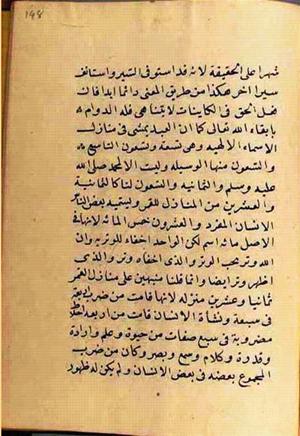 ١٩٨
شهرا على الحقيقة لانه قد استوفى السير واستانف
سيرا اخر هكذا من طريق المعنى دائما ابدا فان
فعل الحق فى الكاينات لا يتناهى فله الدوام
بابقاء الله تعالى كما ان العبد يمشى فى منازل
الاسماء الالهيه وهى تسعة وتسعون التاسع
والتسعون منها الوسيله وليت الا لمحمد صلى الله
عليه وسلم والثمانية والتسعون لنا كالثمانية
والعشرين من المنازل للقمر ويسميه بعض الناس
الانسان المفرد والعشرون خمس المائه لانها فى
الاصل مائة اسم لكن الواحد اخفاء للوتريه فان
الله وتر يحب الوتر والذى اخفاه وتر والذى
اظهر وتر ايضا وانما قلنا منبهين على منازل القمر
ثمانيا وعشرين منزله لانها قامت من ضرب اربعة
فى سبعة ونشأة الانسان قامت من اربعة اخلاط
مضروبة فى سبع صفات من حيوة وعلم وارادة
وقدرة وكلام وسمع وبصر وكان من ضرب
المجموع بعضه فى بعض الانسان ولم يكن له ظهور